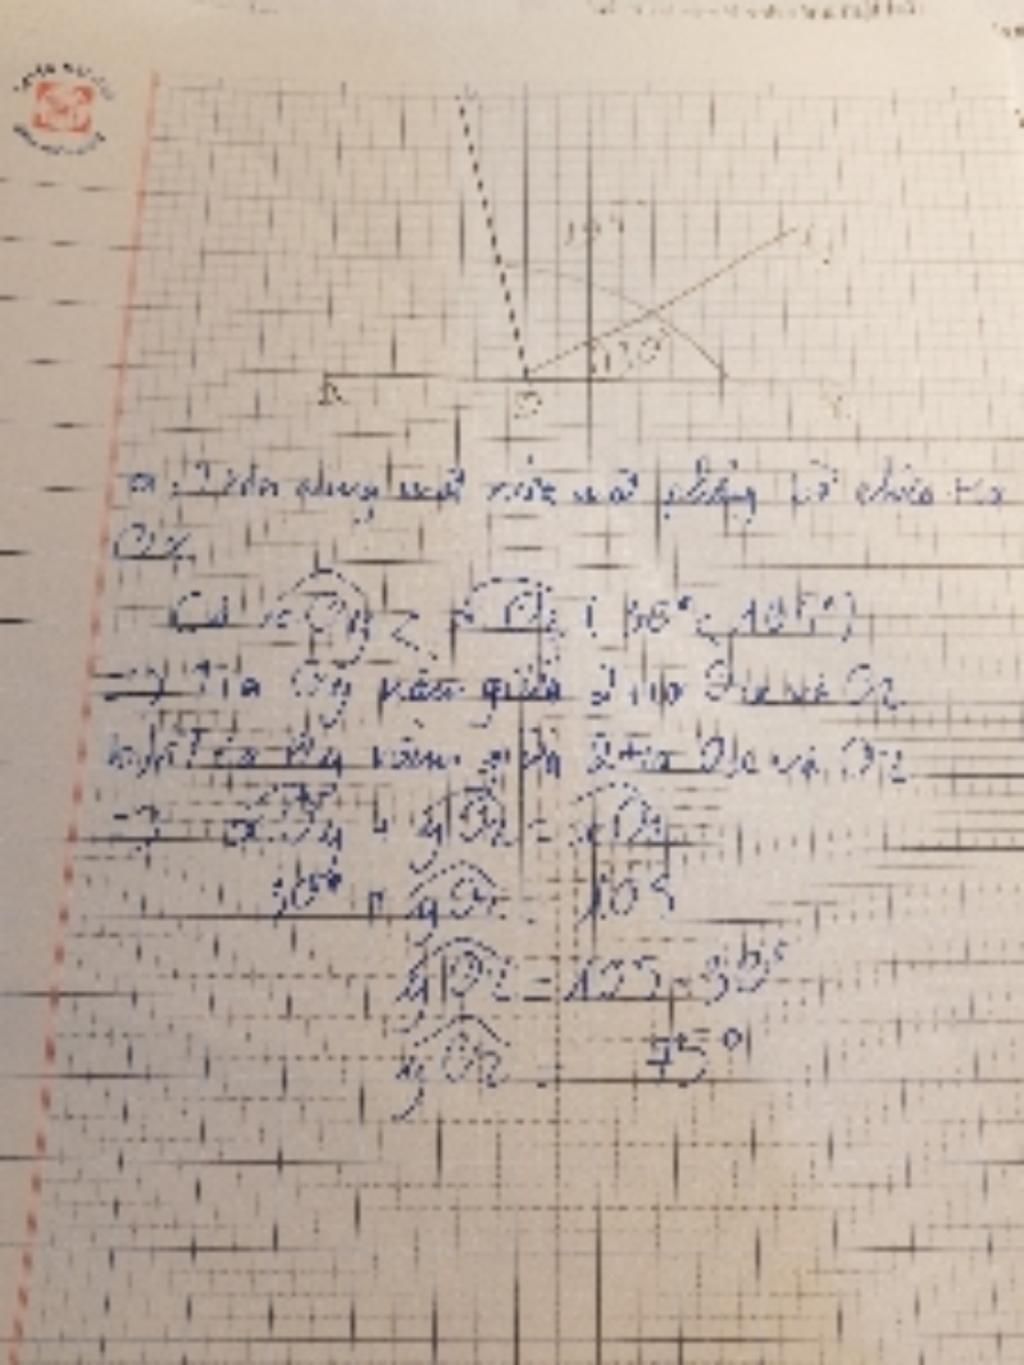 105°
30°
O
a. Trên cùng một nửa mặt phẳng bờ chứa tia
Ox
Có xOy < xOz ( 30° < 105°)
=> Tia Oy nằm giữa 2 tia Ox và Oz
Tia Oy nằm giữa 2 tia Ox và Oz
=> xOy + yOz = xOz
30° + yOz = 105
yOz = 105 - 30°
yOz = 75°